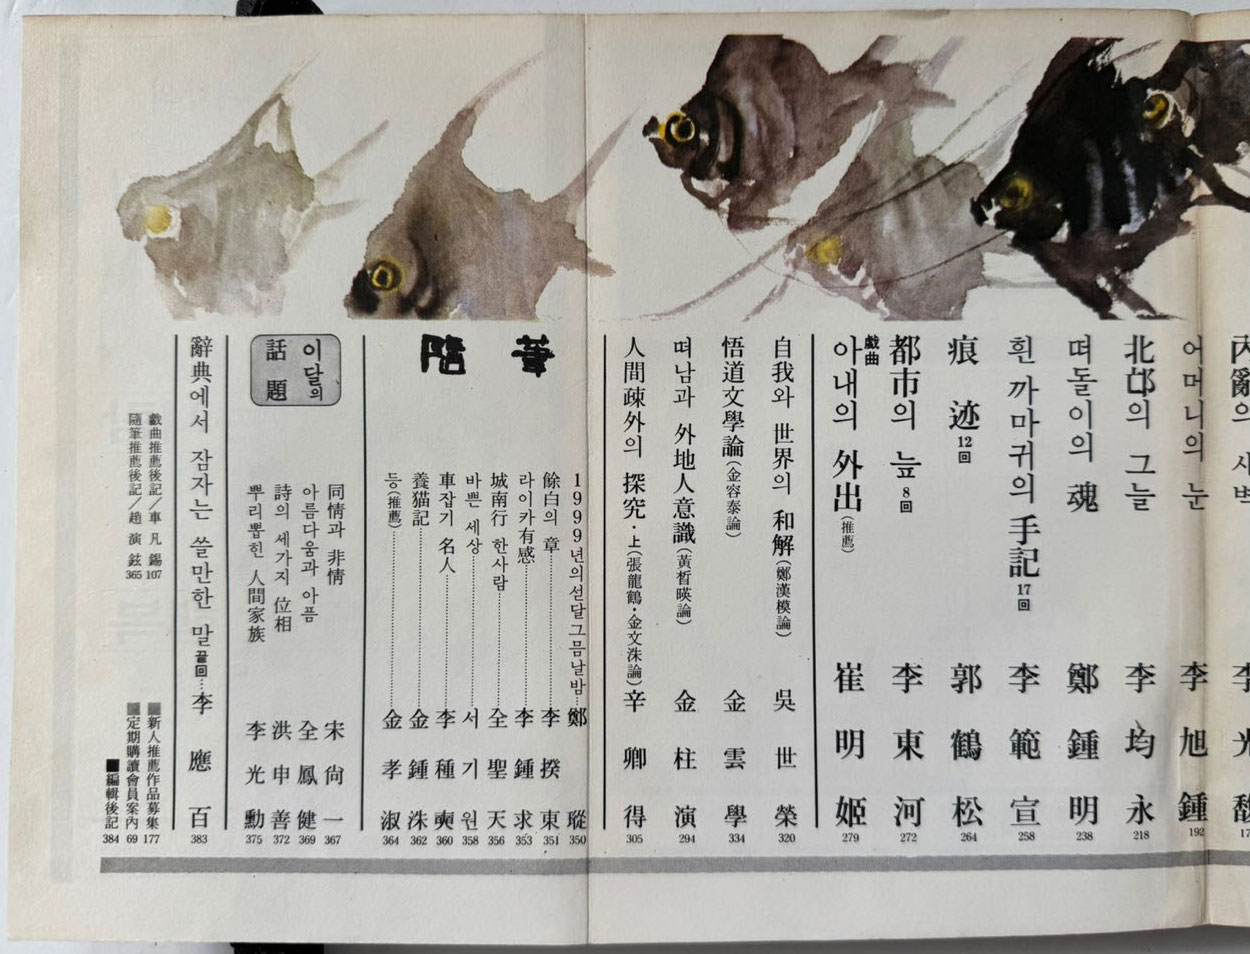 어머니의 눈 李旭鍾 192
北邙의 그늘 李均永 218
떠돌이의 魂 鄭鍾明 238
흰 까마귀의 手記 17回 李範宣 258
痕迹 12回 郭鶴松 264
都市의 늪 8回 李東河 272
戱曲
아내의 外出(推薦) 崔明姬 279
自我와 世界의 和解(鄭漢模論) 吳世榮 320
悟道文學論(金容泰論) 金雲學 334
떠남과 外地人意識(黃晳暎論) 金柱演 294
人間疎外의 探究·上(張龍鶴·金文洙論) 辛卿得 305
隨筆
1999년의섣달그믐날밤 鄭瑽 350
餘白의 章 李揆東 351
라이카有感 李鍾求 353
城南行 한사람 全聖天 356
바쁜 세상 서기원 358
車잡기 名人 李種奭 360
養猫記 金鍾洙 362
등(推薦) 金孝淑 364
이달의 話題
同情과 非情 宋尙一 367
아름다움과 아픔 全鳳健 369
詩의 세가지 位相 洪申善 372
뿌리뽑힌 人間家族 李光勳 375
辭典에서 잠자는 쓸만한 말 끝回 李應百 383
戱曲推薦後記/車凡錫 107
隨筆推薦後記/趙演鉉 365
■新人推薦作品募集 177
■定期購讀會員案內 69
■編輯後記 384